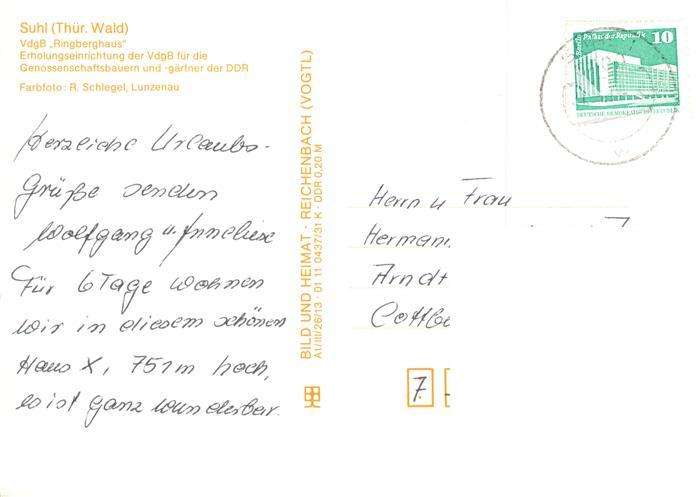 Suhl (Thür. Wald)
VdgB „Ringberghaus"
Erholungseinrichtung der VdgB für die
Genossenschaftsbauern und -gärtner der DDR
Farbfoto: R. Schlegel, Lunzenau
Herzliche Urlaubs-
Grüße senden
Wolfgang u. Anneliese
Für 6 Tage wohnen
wir in diesem schönen
Haus X, 751m hoch,
es ist ganz wunderbar.
BILD UND HEIMAT · REICHENBACH (VOGTL)
A1/III/26/13 · 01 11 0437/31 K · DDR 0,20 M
Berlin Palast der Republik 10
DEUTSCHE DEMOKRATISCHE REPUBLIK
Herrn u Frau
Herman
Arndt
Cottb
7